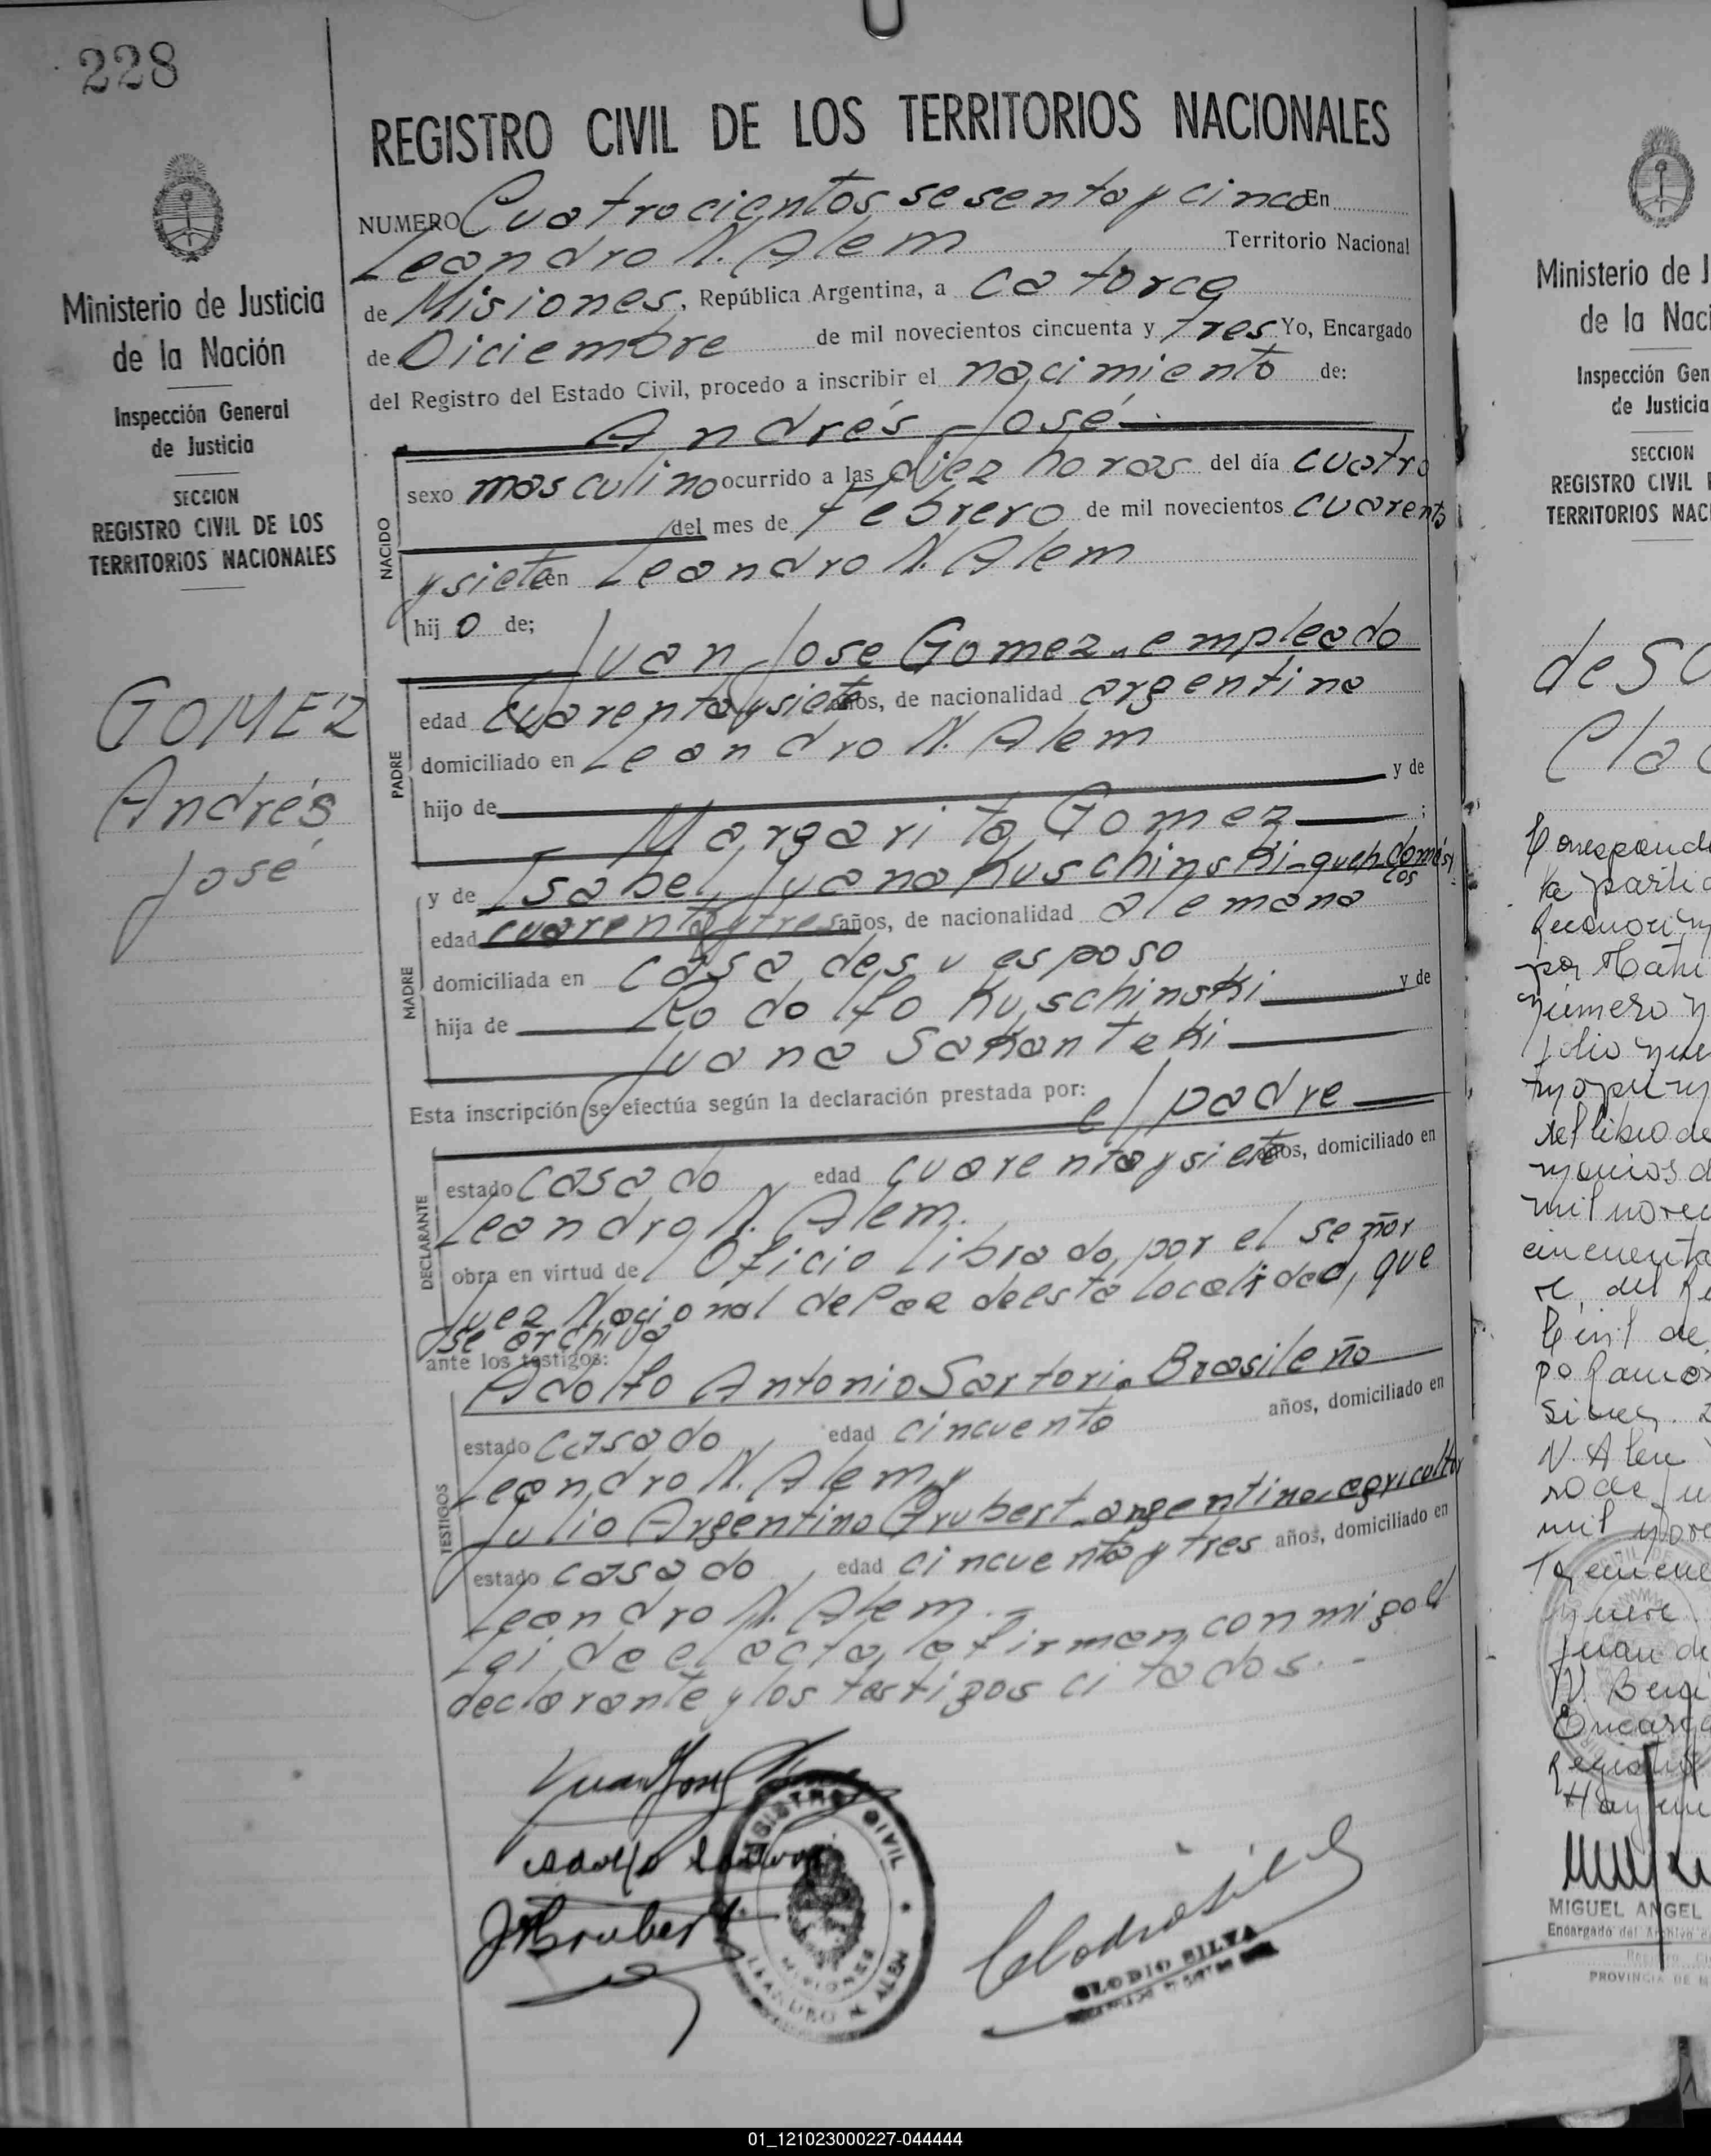 228
REGISTRO CIVIL DE LOS TERRITORIOS NACIONALES
Ministerio de Justicia
de la Nación
Inspección General
de Justicia
SECCION
REGISTRO CIVIL DE LOS
TERRITORIOS NACIONALES
GOMEZ
Andrés
José
NUMERO Cuatrocientos sesenta y cinco En
Leandro N. Alem Territorio Nacional
de Misiones, República Argentina, a catorce
de Diciembre de mil novecientos cincuenta y tres Yo, Encargado
del Registro del Estado Civil, procedo a inscribir el nacimiento de:
Andrés José
NACIDO
sexo masculino ocurrido a las diez horas del día cuatro
del mes de febrero de mil novecientos cuarenta
y siete en Leandro N. Alem
hijo de;
Juan Jose Gomez. empleado
PADRE
edad cuarenta y siete años, de nacionalidad argentina
domiciliado en Leandro N. Alem
hijo de y de
Margarita Gomez ;
y de Isabel Juana Kuschinski-queh. domés
cos
MADRE
edad cuarenta y tres años, de nacionalidad alemana
domiciliada en casa de su esposo
hija de Rodolfo Kuschinski y de
Juana Sakanteki
Esta inscripción se efectúa según la declaración prestada por: el padre
DECLARANTE
estado casado, edad cuarenta y siete años, domiciliado en
Leandro N. Alem.
obra en virtud del Oficio librado, por el señor
Juez Nacional de Paz de esta localidad, que
se archiva
ante los testigos:
TESTIGOS
Adolfo Antonio Sartori. Brasileño
estado casado, edad cincuenta años, domiciliado en
Leandro N. Alem y
Julio Argentino Brubert. argentino. agricultor
estado casado, edad cincuenta y tres años, domiciliado en
Leandro N. Alem.-
Leida el acta, la firman, con migo el
declarante y los testigos citados.-
Juan Jose
Adolfo Sartori
J A Brubert
REGISTRO CIVIL
MISIONES
LEANDRO N. ALEM
Clodio Silva
CLODIO SILVA
Ministerio de J
de la Naci
Inspección Gen
de Justicia
SECCION
REGISTRO CIVIL
TERRITORIOS NAC
de SO
Cla
Corresponde
la partid
por Matri
número
del libro de
mil novec
cincuenta
N. Alem
MIGUEL ANGEL
Encargado del Archivo
PROVINCIA DE M
01_121023000227-044444